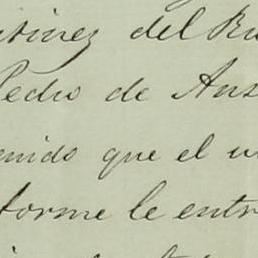 rtinez del Ru
Pedro de Ans
enido que el u
forme le entr